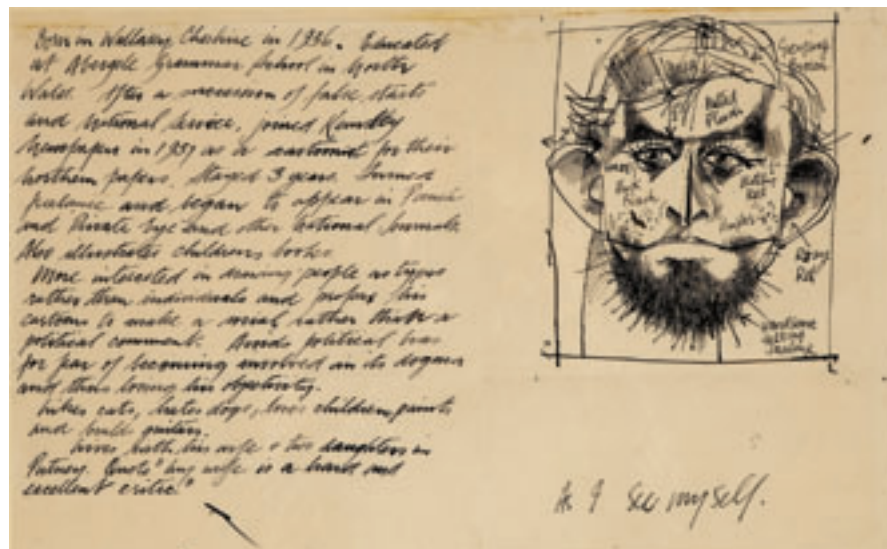 Born in Wallasey Cheshire in 1936. Educated
at Abergele Grammar School in North
Wales. After a succession of false starts
and National Service, joined Kemsley
Newspapers in 1957 as a cartoonist for their
Northern papers. Stayed 3 years. Turned
freelance and began to appear in Punch
and Private Eye and other National Journals.
Also illustrates childrens books.
More interested in drawing people as types
rather than individuals and prefers his
cartoons to make a social rather than a
political comment. Avoids political bias
for fear of becoming involved in its dogma
and thus losing his objectivity.
Likes cats, hates dogs, loves children, paints
and builds guitars.
Lives with his wife + two daughters in
Putney. Quote "my wife is a hard and
excellent critic."
Rosy
Red
As I see myself.